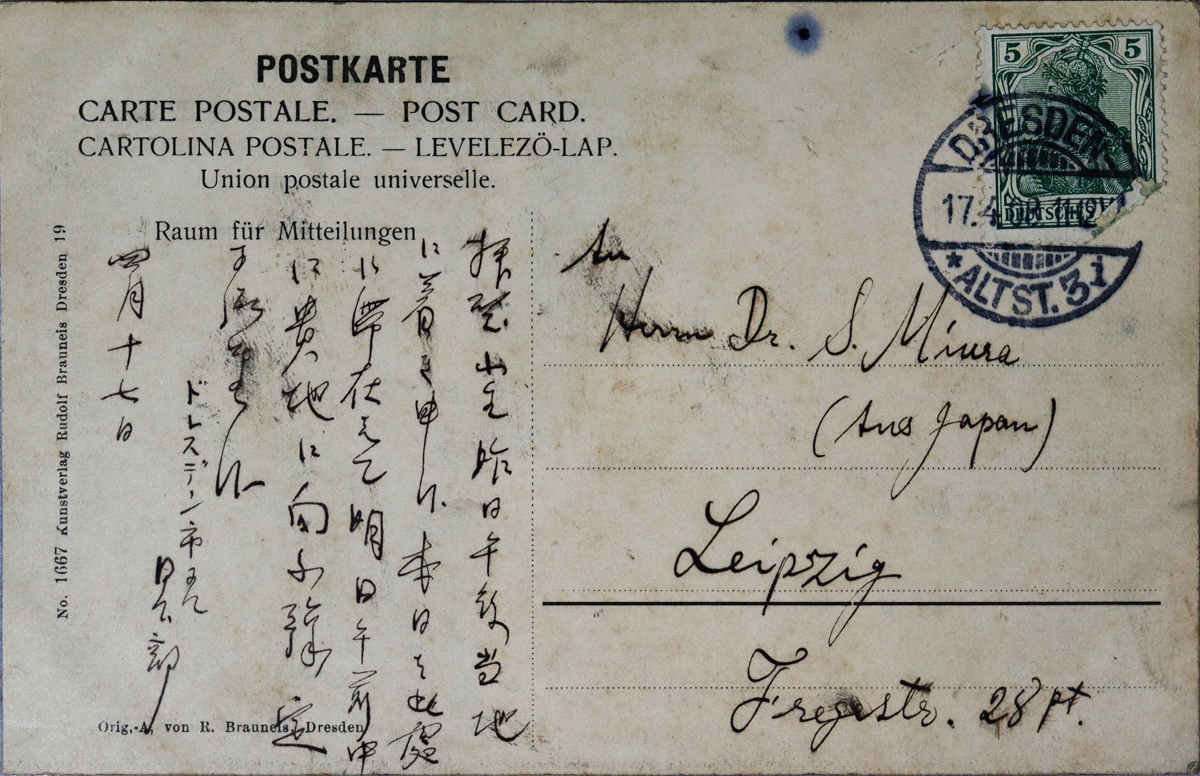 POSTKARTE
CARTE POSTALE. — POST CARD.
CARTOLINA POSTALE. — LEVELEZÖ-LAP.
Union postale universelle.
Raum für Mitteilungen
拝啓 小生昨日午後当地
に着 申 本日 此処
に滞在 明日午前中
に貴地に向 定

ドレスデン市
日下部
四月十七日
No. 1667 Kunstverlag Rudolf Brauneis Dresden 19
Orig.-A. von R. Brauneis, Dresden
5 5
DEUTSCHES
DRESDEN
17.4.08. 11-12V.
*ALTST. 3 i
An
Herrn Dr. S. Miura
(Aus Japan)
Leipzig
Fregestr. 28 pt.